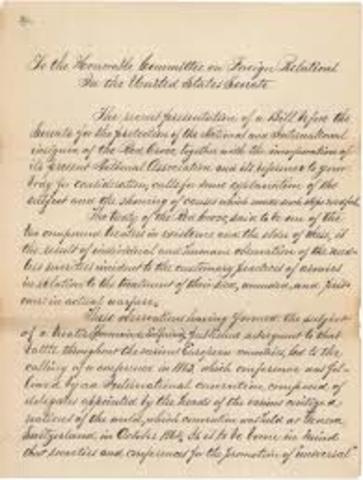 To the Honorable Committee on Foreign Relations
In the United States Senate
The recent presentation of a Bill before the
Senate for the protection of the National and International
insignia of the Red Cross together with the incorporation of
its present National Association and its reference to your
body for consideration, calls for some explanation of the
subject and the showing of causes which made such steps needful.
The treaty of the Red Cross, said to be one of the
two compound treaties in existence and the elder of these, is
the result of individual and humane observation of the
needless incident to the customary practices of armies
in relation to the treatment of their sick, wounded, and
in actual warfare.
These observations having formed the subject
of a published subsequent to that
battle throughout the various European countries, led to the
calling of a conference in 1863, which conference was
by an International convention composed of
delegates appointed by the heads of the various civilized
nations of the world, which convention was held at Geneva
Switzerland, in October 1864. It is to be borne in mind
that societies and conferences for the promotion of "universal"